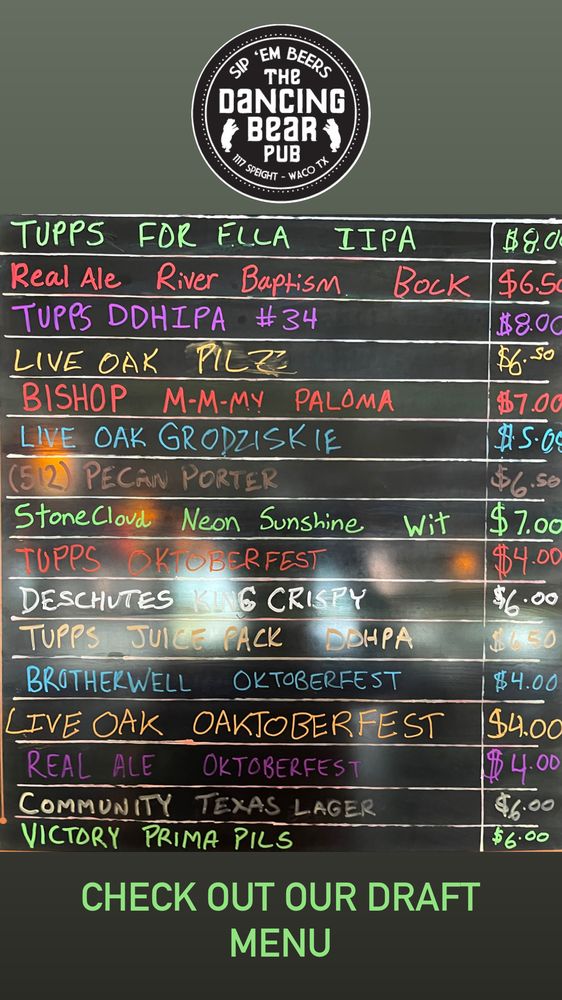 SIP 'EM BEERS
THE
DANCING
BEAR
PUB
1117 SPEIGHT - WACO TX
TUPPS FOR ELLA IIPA $8.0
Real Ale River Baptism Bock $6.50
TUPPS DDHIPA #34 $8.00
LIVE OAK PILZ $6.50
BISHOP M-M-MY PALOMA $7.00
LIVE OAK GRODZISKIE $5.00
(512) PECAN PORTER $6.50
StoneCloud Neon Sunshine Wit $7.00
TUPPS OKTOBERFEST $4.00
DESCHUTES KING CRISPY $6.00
TUPPS JUICE PACK DDHPA $6.50
BROTHERWELL OKTOBERFEST $4.00
LIVE OAK OAKTOBERFEST $4.00
REAL ALE OKTOBERFEST $4.00
COMMUNITY TEXAS LAGER $6.00
VICTORY PRIMA PILS $6.00
CHECK OUT OUR DRAFT
MENU